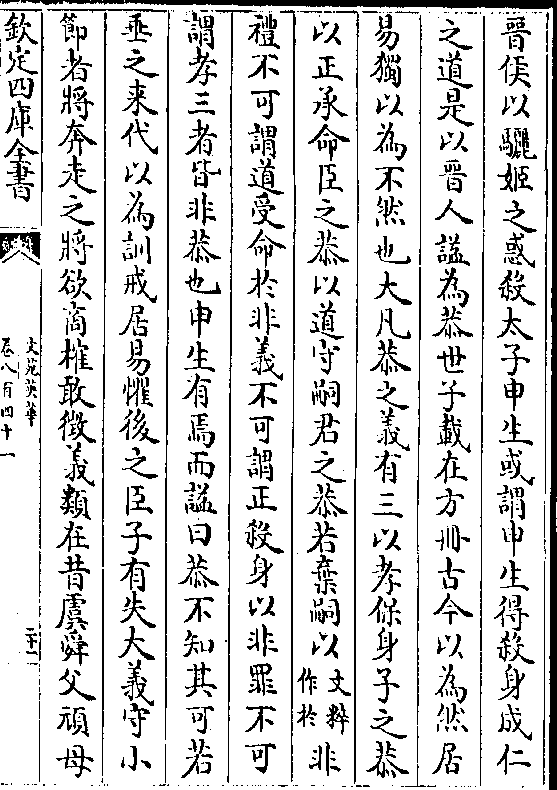 晉侯以驪姬之惑殺太子申生或謂申生得殺身成仁
之道是以晉人諡為恭世子載在方冊古今以為然居
易獨以為不然也大凡恭之義有三以孝保身子之恭
以正承命臣之恭以道守嗣君之恭若棄嗣以文粹作於非
禮不可謂道受命於非義不可謂正殺身以非罪不可
謂孝三者皆非恭也申生有焉而諡曰恭不知其可若
垂之来代以為訓戒居易懼後之臣子有失大義守小
節者將奔走之將欲商榷敢徵義類在昔虞舜父頑母
欽定四庫全書
文苑英華
卷八百四十一
二十二